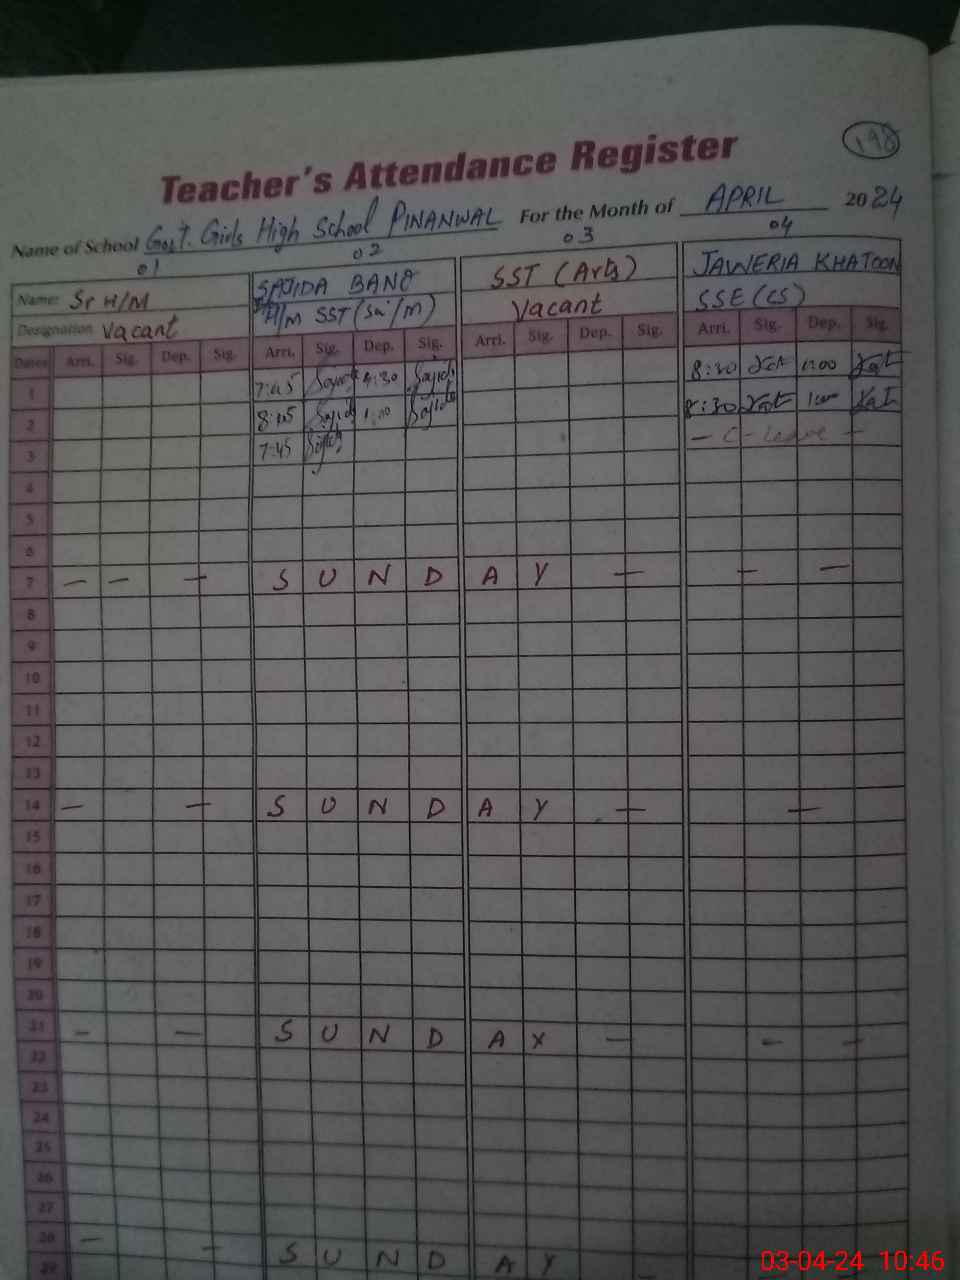 198
Teacher's Attendance Register
Name of School Govt. Girls High School PINANWAL For the Month of APRIL 2024
01 02 03 04
Name: Sr H/M SAJIDA BANO SST (Arts) JAWERIA KHATOON
Designation Vacant H/M SST (Sci/M) Vacant SSE (CS)
Dates Arri. Sig. Dep. Sig. Arri. Sig. Dep. Sig. Arri. Sig. Dep. Sig. Arri. Sig. Dep. Sig.
1 7:45 4:30 8:30 1:00
2 8:05 1:00 8:30 1:00
3 7:45 — C-Leave —
4
5
6
7 — — — S U N D A Y — — —
8
9
10
11
12
13
14 — — S U N D A Y — —
15
16
17
18
19
20
21 — — S U N D A Y — — —
22
23
24
25
26
27
28 — — S U N D A Y —
29
03-04-24 10:46